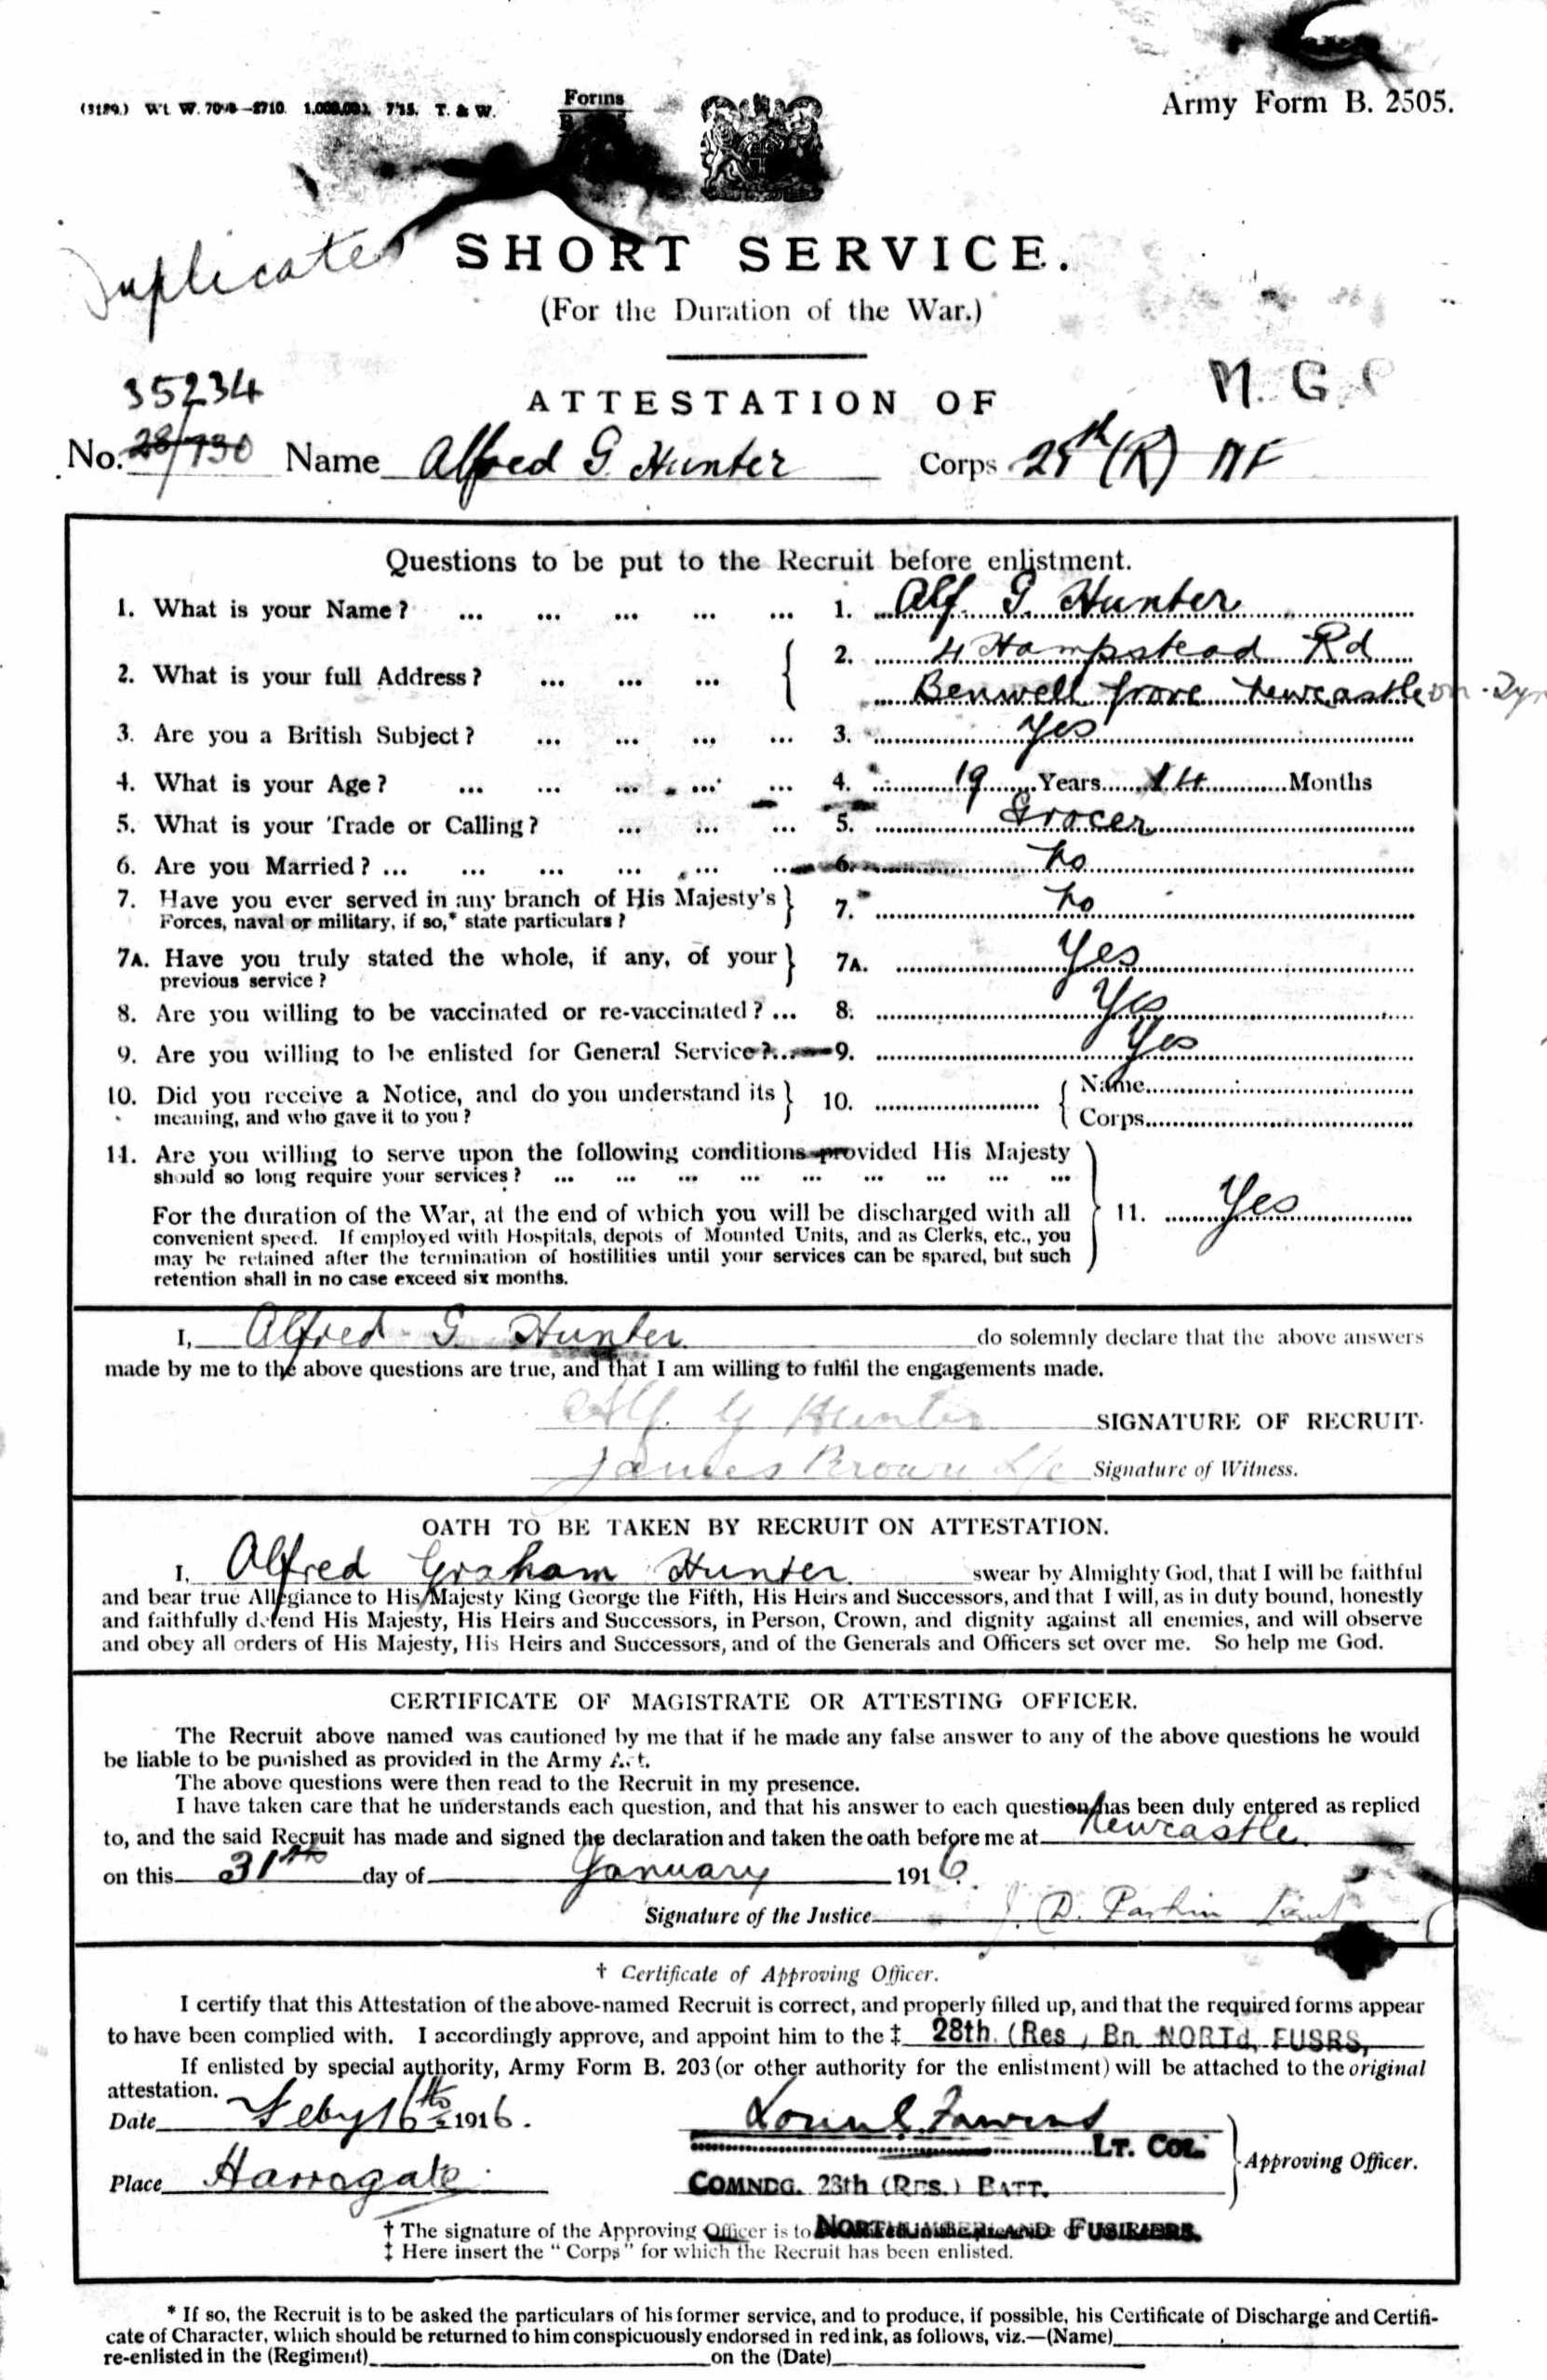 (3189.) Wt. W. 1,000,000. 7/15. T. & W. Forms Army Form B. 2505.
Duplicate
SHORT SERVICE.
(For the Duration of the War.)
M. G. C
35234
ATTESTATION OF
No. 28/730 Name Alfred G Hunter Corps 28th (R) NF
Questions to be put to the Recruit before enlistment.
1. What is your Name? ... ... ... ... ... 1. Alf. G Hunter
2. What is your full Address? ... ... ... { 2. 4 Hampstead Rd
Benwell Newcastle on - Tyn
3. Are you a British Subject? ... ... ... ... 3. Yes
4. What is your Age? ... ... ... ... ... 4. 19 Years Months
5. What is your Trade or Calling? ... ... ... 5. Grocer
6. Are you Married? ... ... ... ... ... ... 6. No
7. Have you ever served in any branch of His Majesty's } 7. No
Forces, naval or military, if so,* state particulars?
7A. Have you truly stated the whole, if any, of your } 7A. Yes
previous service?
8. Are you willing to be vaccinated or re-vaccinated? ... 8. Yes
9. Are you willing to be enlisted for General Service?... 9. Yes
10. Did you receive a Notice, and do you understand its } 10. { Name
meaning, and who gave it to you? Corps
11. Are you willing to serve upon the following conditions provided His Majesty
should so long require your services? ... ... ... ... ... ... ... ... ...
For the duration of the War, at the end of which you will be discharged with all } 11. Yes
convenient speed. If employed with Hospitals, depots of Mounted Units, and as Clerks, etc., you
may be retained after the termination of hostilities until your services can be spared, but such
retention shall in no case exceed six months.
I, Alfred G Hunter do solemnly declare that the above answers
made by me to the above questions are true, and that I am willing to fulfil the engagements made.
Alf. G Hunter SIGNATURE OF RECRUIT.
James Brown L/c Signature of Witness.
OATH TO BE TAKEN BY RECRUIT ON ATTESTATION.
I, Alfred Graham Hunter swear by Almighty God, that I will be faithful
and bear true Allegiance to His Majesty King George the Fifth, His Heirs and Successors, and that I will, as in duty bound, honestly
and faithfully defend His Majesty, His Heirs and Successors, in Person, Crown, and dignity against all enemies, and will observe
and obey all orders of His Majesty, His Heirs and Successors, and of the Generals and Officers set over me. So help me God.
CERTIFICATE OF MAGISTRATE OR ATTESTING OFFICER.
The Recruit above named was cautioned by me that if he made any false answer to any of the above questions he would
be liable to be punished as provided in the Army Act.
The above questions were then read to the Recruit in my presence.
I have taken care that he understands each question, and that his answer to each question has been duly entered as replied
to, and the said Recruit has made and signed the declaration and taken the oath before me at Newcastle
on this 31th day of January 1916.
Signature of the Justice J. D. Parkin Lieut
† Certificate of Approving Officer.
I certify that this Attestation of the above-named Recruit is correct, and properly filled up, and that the required forms appear
to have been complied with. I accordingly approve, and appoint him to the ‡ 28th (Res.) Bn NORTd. FUSRS,
If enlisted by special authority, Army Form B. 203 (or other authority for the enlistment) will be attached to the original
attestation.
Date Feby 16th 1916.
LT. COL.
Place Harrogate COMNDG. 28th (RES.) BATT. } Approving Officer.
† The signature of the Approving Officer is to NORTHUMBERLAND FUSILIERS.
‡ Here insert the "Corps" for which the Recruit has been enlisted.
* If so, the Recruit is to be asked the particulars of his former service, and to produce, if possible, his Certificate of Discharge and Certifi-
cate of Character, which should be returned to him conspicuously endorsed in red ink, as follows, viz.—(Name)
re-enlisted in the (Regiment) on the (Date)